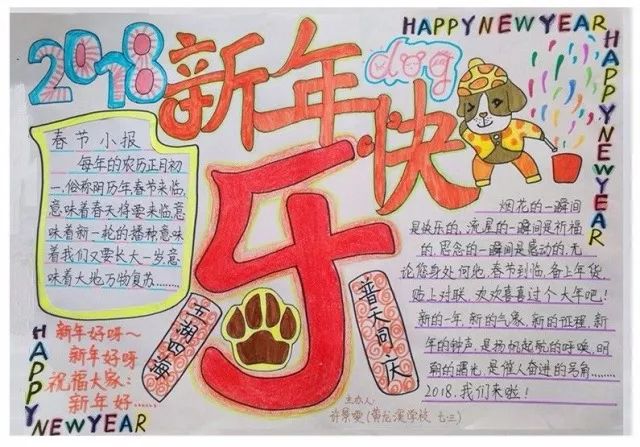 2018
新年快
乐
dog
HAPPY NEW YEAR
HAPPY NEW YEAR
春节小报
每年的农历正月初
一,俗称阴历年春节来临,
意味着春天将要来临,意
味着新一轮的播种,意味
着我们又要长大一岁,意
味着大地万物复苏……
烟花的一瞬间
是快乐的、流星的一瞬间是祈福
的、思念的一瞬间是感动的,无
论您身处何地,春节到临,备上年货,
贴上对联,欢欢喜喜过个大年吧!
新的一年,新的气象,新的征程,新
年的钟声,是扬帆起航的呼唤,明
朝的曙光,是催人奋进的号角……
2018,我们来啦!
五湖四海
普天同庆
新年好呀~
新年好呀
祝福大家:
新年好……
HAPPY
NEW YEAR
主办人:
(黄龙溪学校 七三)